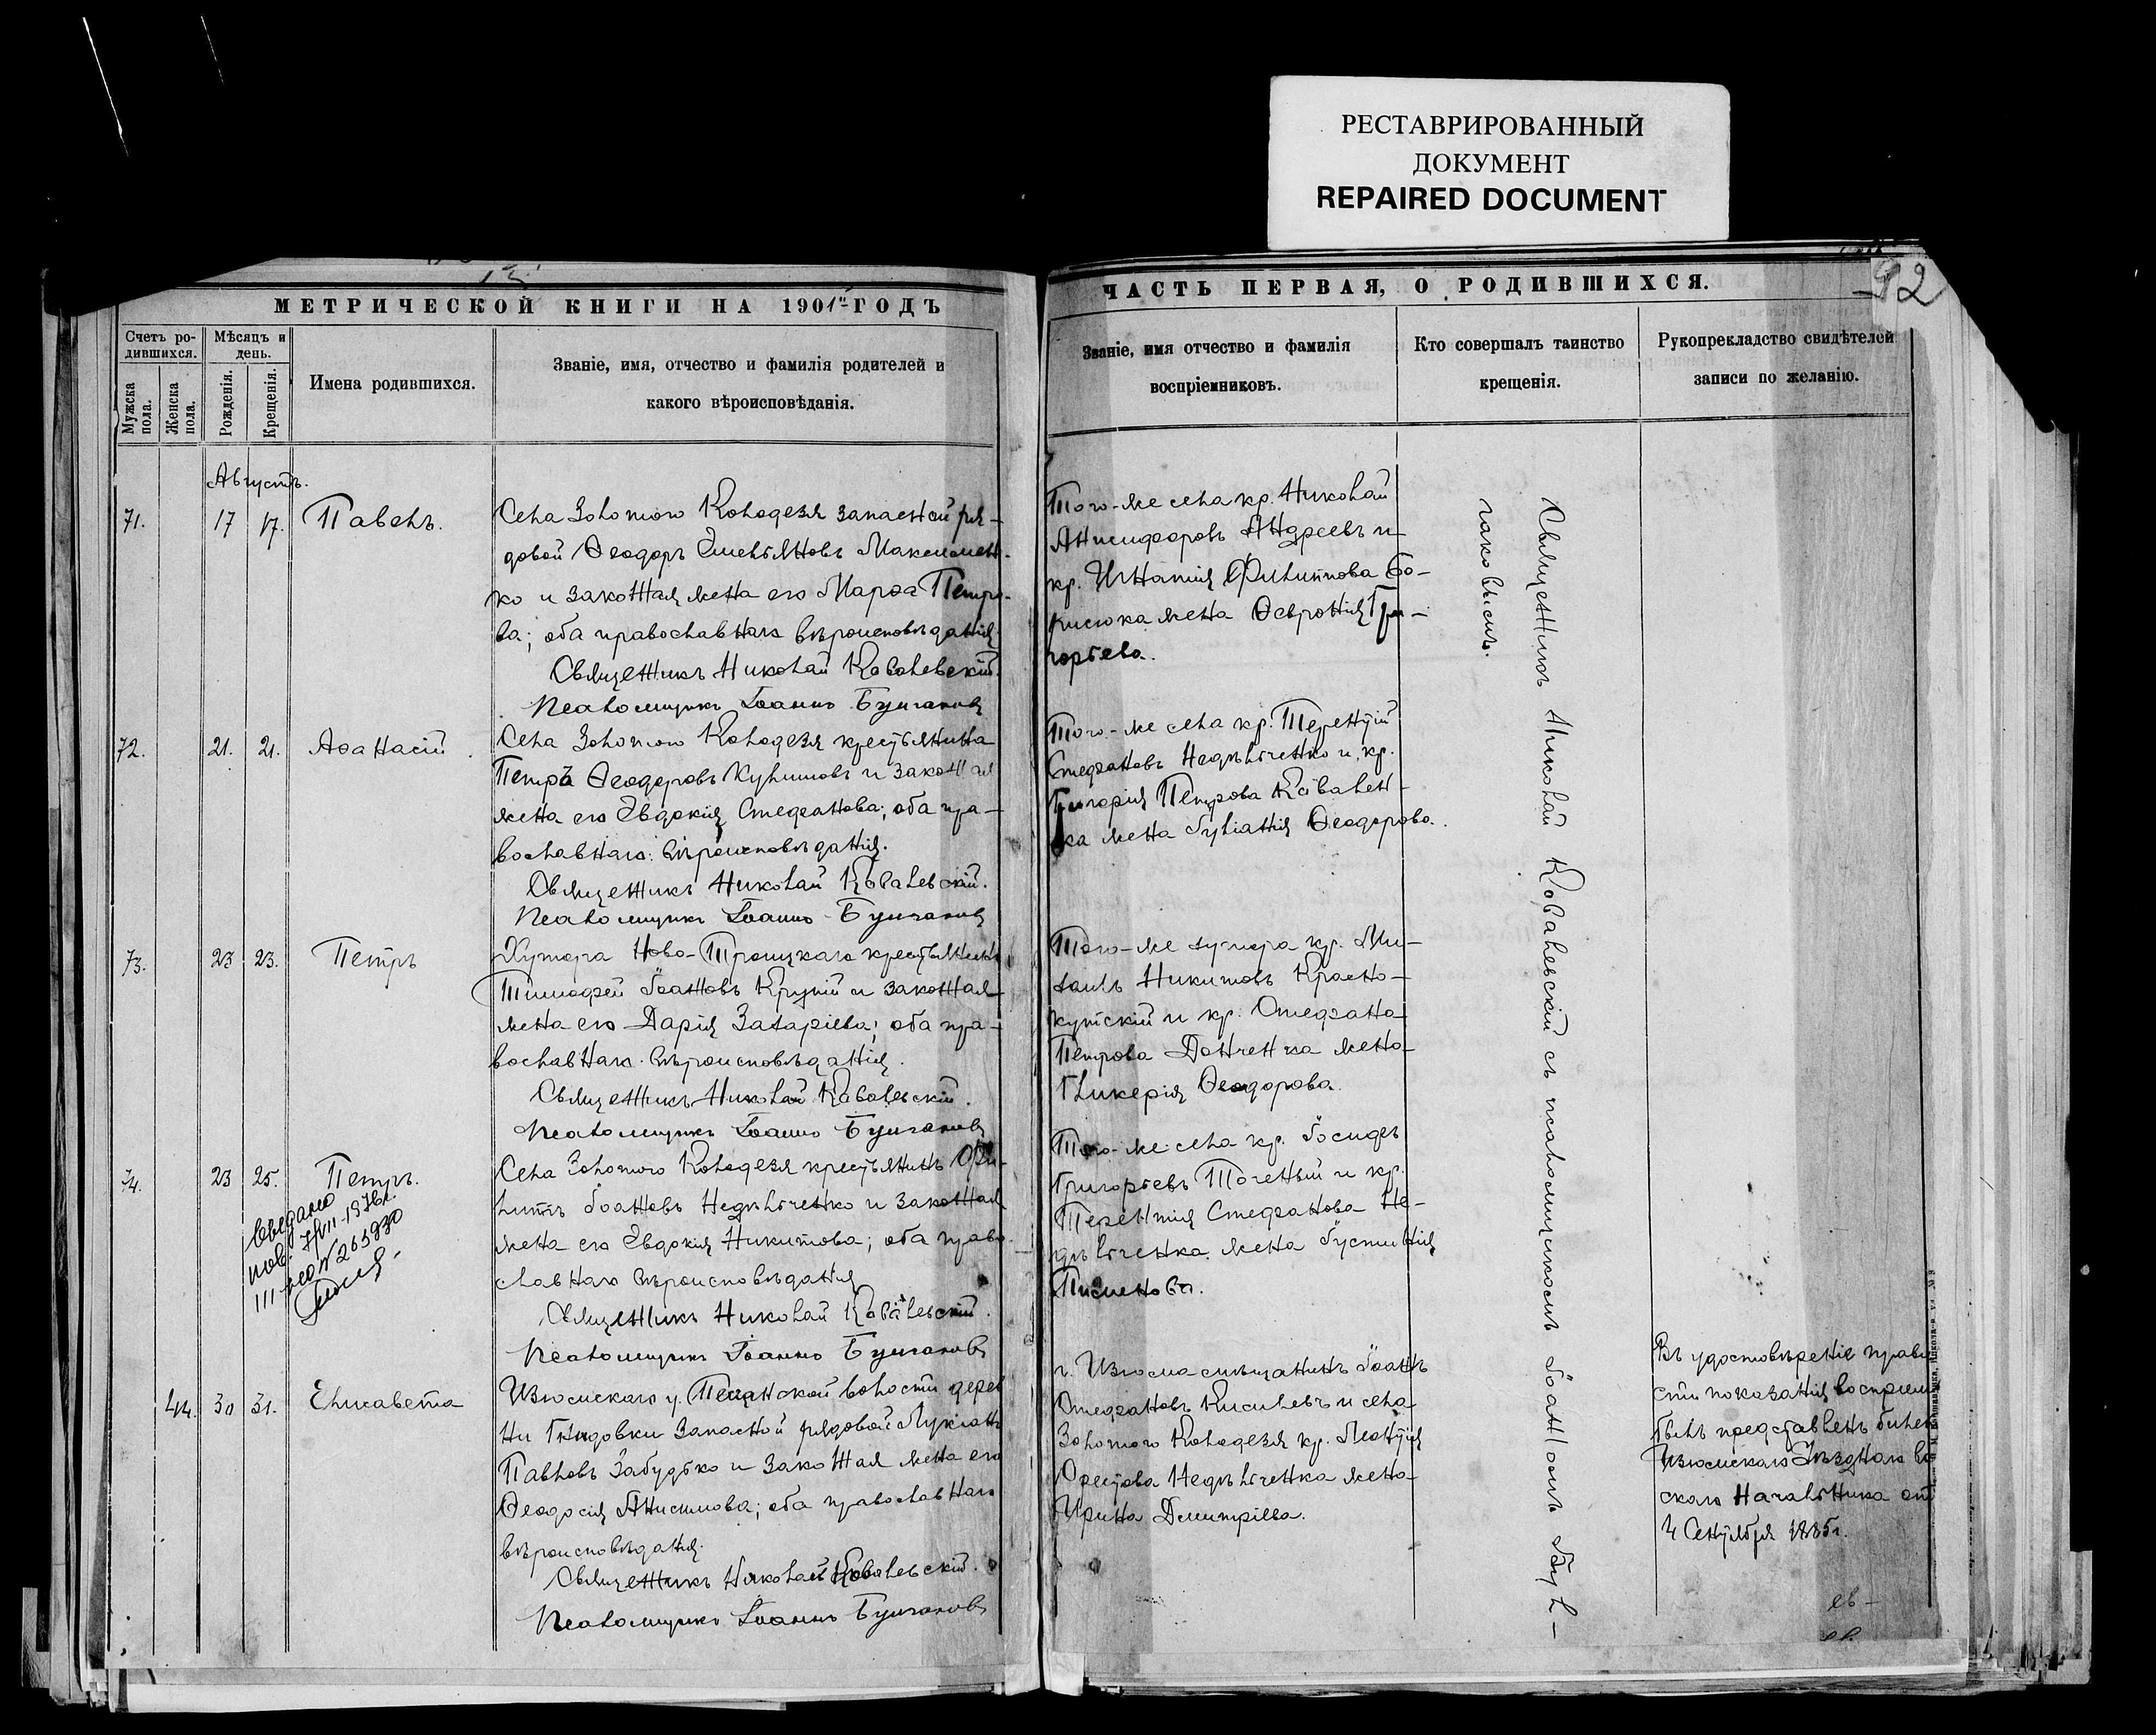 РЕСТАВРИРОВАННЫЙ
ДОКУМЕНТ
REPAIRED DOCUMENT
92
МЕТРИЧЕСКОЙ КНИГИ НА 1901й ГОДЪ
Счетъ ро-
дившихся.
Мужска
пола.
Женска
пола.
Мѣсяцъ и
день.
Рожденія.
Крещенія.
Имена родившихся.
Званіе, имя, отчество и фамилія родителей и
какого вѣроисповѣданія.
ЧАСТЬ ПЕРВАЯ, О РОДИВШИХСЯ.
Званіе, имя отчество и фамилія
воспріемниковъ.
Кто совершалъ таинство
крещенія.
Рукоприкладство свидѣтелей
записи по желанію.
Августъ.
71. 17 17. Павелъ.
Села Золотого Колодезя запасной ря-
довой Ѳеодоръ Емельяновъ Максимен-
ко и законная жена его Марѳа Петро-
ва; оба православнаго вѣроисповѣданія.
Священникъ Николай Ковалевскій.
Псаломщикъ Іоаннъ
Того-же села кр. Николай
Анисифоровъ Андреевъ и
кр. Игнатія Филиппова Бо-
рисюка жена Ѳевронія Гри-
горьева.
72. 21. 21. Аѳанасій
Села Золотого Колодезя крестьянина
Петръ Ѳеодоровъ Кулишовъ и законная
жена его Евдокія Стефанова; оба пра-
вославнаго вѣроисповѣданія.
Священникъ Николай Ковалевскій.
Псаломщикъ Іоаннъ
Того-же села кр. Терентій
Стефановъ Недѣльченко и кр.
Григорія Петрова Ковален-
ка жена Іуліанія Ѳеодорова.
73. 23 23. Петръ
Хутора Ново-Троицкаго крестьянинъ
Тимофей Іоанновъ Крупій и законная
жена его Дарія Захаріева; оба пра-
вославнаго вѣроисповѣданія.
Священникъ Николай Ковалевскій.
Псаломщикъ Іоаннъ
Того-же хутора кр. Ми-
хаилъ Никитовъ Красно-
кутскій и кр. Стефана
Петрова Донченка жена
Гликерія Ѳеодорова.
74. 23 25. Петръ.
Села Золотого Колодезя крестьянинъ Фи-
липпъ Іоанновъ Недѣльченко и законная
жена его Евдокія Никитова; оба право-
славнаго вѣроисповѣданія
Священникъ Николай Ковалевскій.
Псаломщикъ Іоаннъ
Того-же села кр. Іосифъ
Григорьевъ Точеный и кр.
Терентія Стефанова Не-
дѣльченка жена Іустинія
Пименова.
44. 30 31. Елисавета
Изюмскаго у. Песчанской волости дерев
ни Гнидовки запасной рядовой Лукіанъ
Павловъ Забудько и законная жена его
Ѳеодосія Анисимова; оба православнаго
вѣроисповѣданія.
Священникъ Николай Ковалевскій.
Псаломщикъ Іоаннъ
г. Изюма мѣщанинъ Іоаннъ
Стефановъ Кисилевъ и села
Золотого Колодезя кр. Леонтія
Орестова Недѣльченка жена
Ирина Димитріева.
Священникъ Николай Ковалевскій съ псаломщикомъ Іоанномъ
Въ удостовѣреніе прави
сти показанія воспріем
былъ представленъ билетъ
Изюмскаго Уѣзднаго во
скаго Начальника отъ
4 Сентября 1885г.